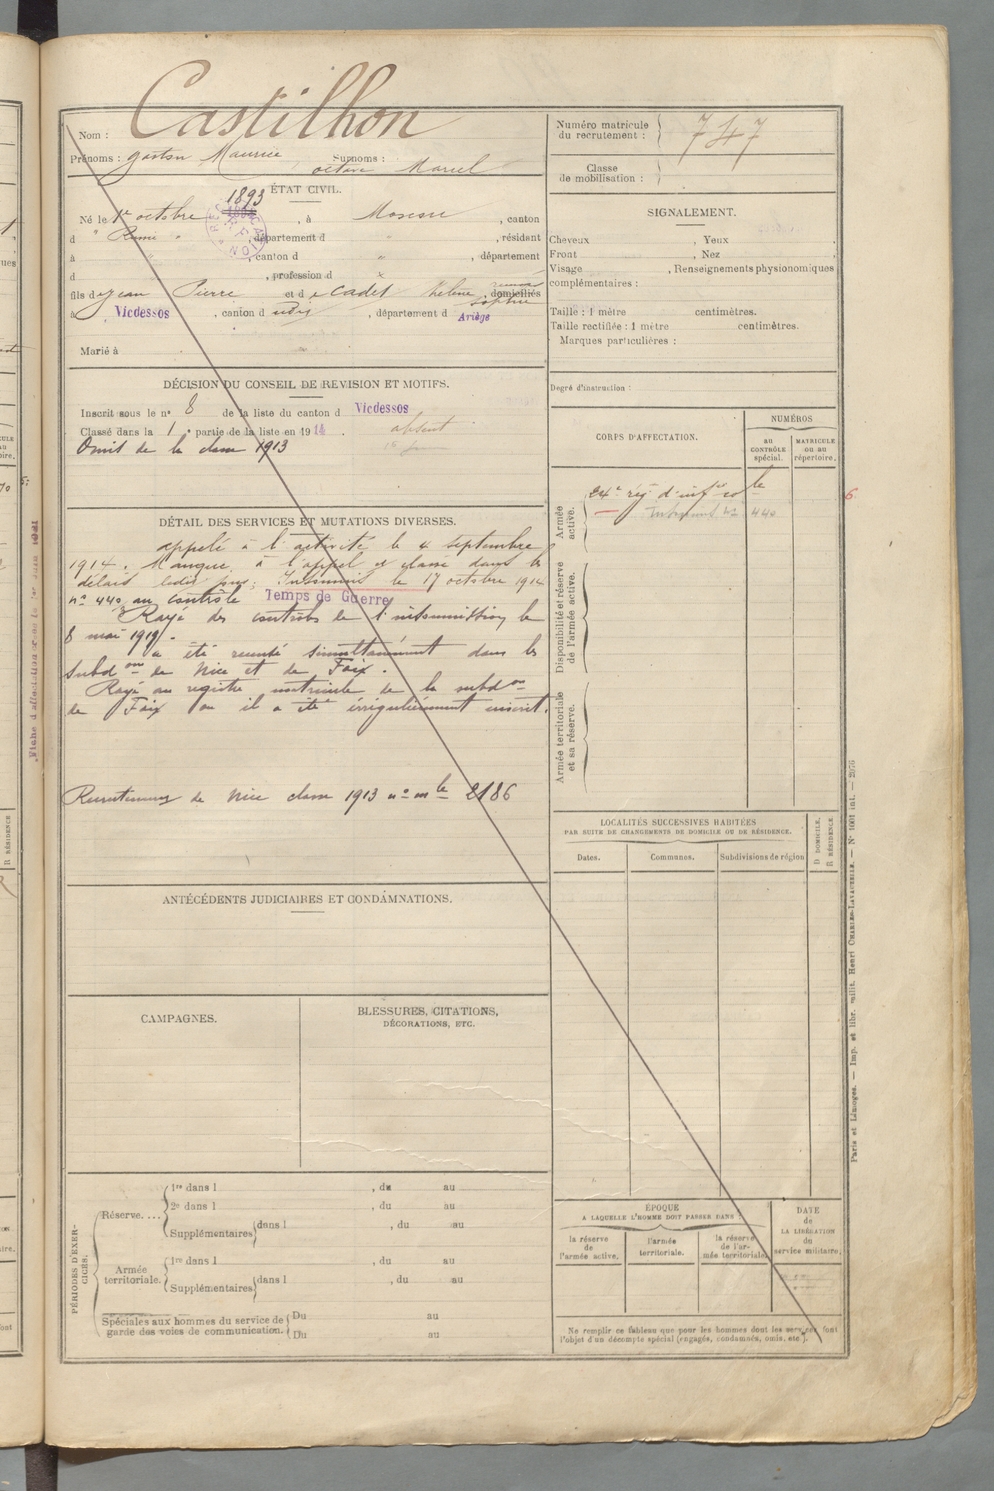 Nom : Castilhon
Prénoms : Gaston Maurice Octave Marcel Surnoms :
Numéro matricule du recrutement : 747
Classe de mobilisation :
ÉTAT CIVIL.
1893
Né le 1er octobre , à , canton
d Russie , département d , résidant
à , canton d " , département
d , profession d x
fils de Jean Pierre et de Cadet Hélène Sophie , domiciliés
à Vicdessos , canton d udis , département d Ariège
Marié à
SIGNALEMENT.
Cheveux , Yeux .
Front , Nez .
Visage , Renseignements physionomiques
complémentaires :
Taille : 1 mètre centimètres.
Taille rectifiée : 1 mètre centimètres.
Marques particulières :
Degré d'instruction :
DÉCISION DU CONSEIL DE REVISION ET MOTIFS.
Inscrit sous le n° 8 de la liste du canton d Vicdessos
Classé dans la 1 e partie de la liste en 1914 . absent
Omis de la classe 1913
DÉTAIL DES SERVICES ET MUTATIONS DIVERSES.
Appelé à l'activité le 4 septembre
1914. Manque à l'appel de classe dans les
délais Insoumis le 17 octobre 1914
n° 440 au contrôle Temps de Guerre
Rayé des contrôles de l'insoumission le
8 mai 1919.
a été recensé simultanément dans les
subdons de Nice et de Foix.
Rayé au registre matricule de la subdon
de Foix où il a été irrégulièrement inscrit.
Recrutement de Nice classe 1913 n° mle 2186
CORPS D'AFFECTATION.
NUMÉROS
au CONTRÔLE spécial.
MATRICULE OU AU répertoire.
Armée active.
24e rég. d'inf. col le
Insoumis 440
6.
Disponibilité et réserve de l'armée active.
Armée territoriale et sa réserve.
LOCALITÉS SUCCESSIVES HABITÉES
PAR SUITE DE CHANGEMENTS DE DOMICILE OU DE RÉSIDENCE.
Dates. Communes. Subdivisions de région
D DOMICILE. R RÉSIDENCE.
ANTÉCÉDENTS JUDICIAIRES ET CONDAMNATIONS.
CAMPAGNES.
BLESSURES, CITATIONS,
DÉCORATIONS, ETC.
PÉRIODES D'EXERCICES.
Réserve....
1re dans l , du au
2e dans l , du au
Supplémentaires dans l , du au
Armée territoriale.
1re dans l , du au
Supplémentaires dans l , du au
Spéciales aux hommes du service de
garde des voies de communication.
Du au
Du au
ÉPOQUE
A LAQUELLE L'HOMME DOIT PASSER DANS :
la réserve de l'armée active.
l'armée territoriale.
la réserve de l'armée territoriale.
DATE
de
LA LIBÉRATION
du
service militaire.
Ne remplir ce tableau que pour les hommes dont les services font
l'objet d'un décompte spécial (engagés, condamnés, omis, etc.).
Paris et Limoges. — Imp. et libr. milit. Henri CHARLES-LAVAUZELLE. — N° 1001 int. — 2976